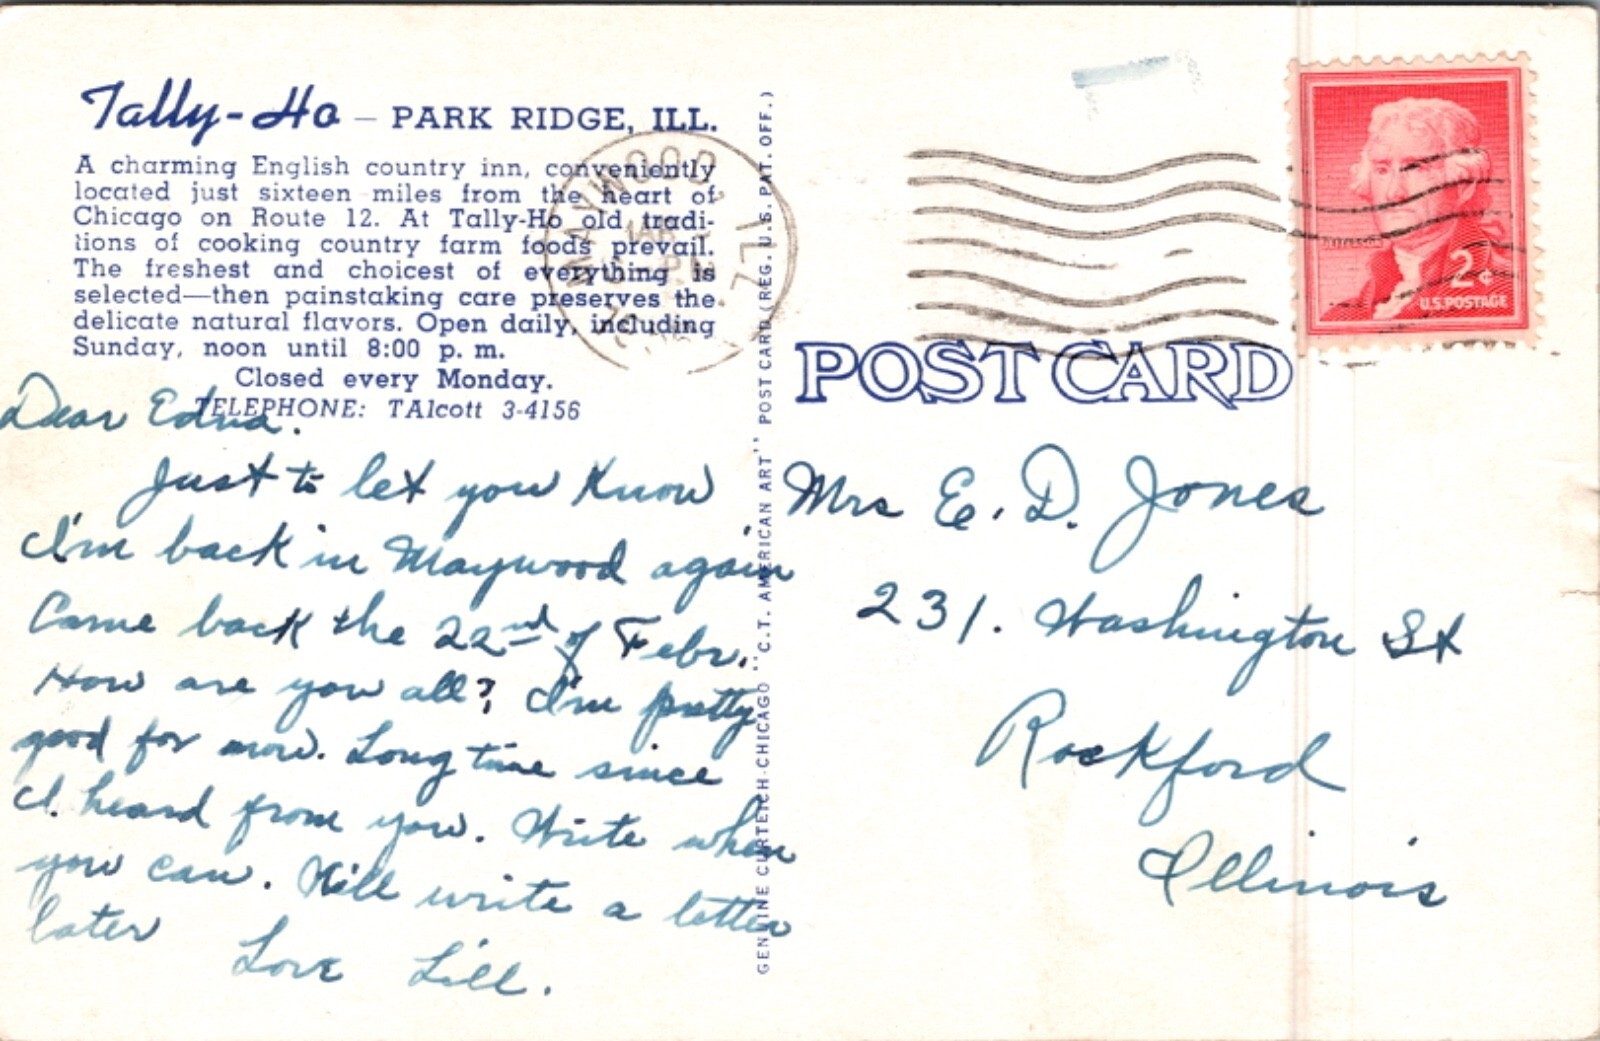 Tally-Ho — PARK RIDGE, ILL.
A charming English country inn, conveniently
located just sixteen miles from the heart of
Chicago on Route 12. At Tally-Ho old tradi-
tions of cooking country farm foods prevail.
The freshest and choicest of everything is
selected—then painstaking care preserves the
delicate natural flavors. Open daily, including
Sunday, noon until 8:00 p. m.
Closed every Monday.
TELEPHONE: TAlcott 3-4156
Dear Edna.
Just to let you know
I'm back in Maywood again
Came back the 22nd of Febr.
How are you all? I'm pretty
good for now. Long time since
I heard from you. Write when
you can. Will write a letter
later
Love Lill.
GENUINE CURTEICH-CHICAGO "C.T. AMERICAN ART" POST CARD (REG. U.S. PAT. OFF.)
MAYWOOD, ILL.
MAR
PM
JEFFERSON
2¢
U.S. POSTAGE
POST CARD
Mrs E. D. Jones
231. Washington St
Rockford
Illinois